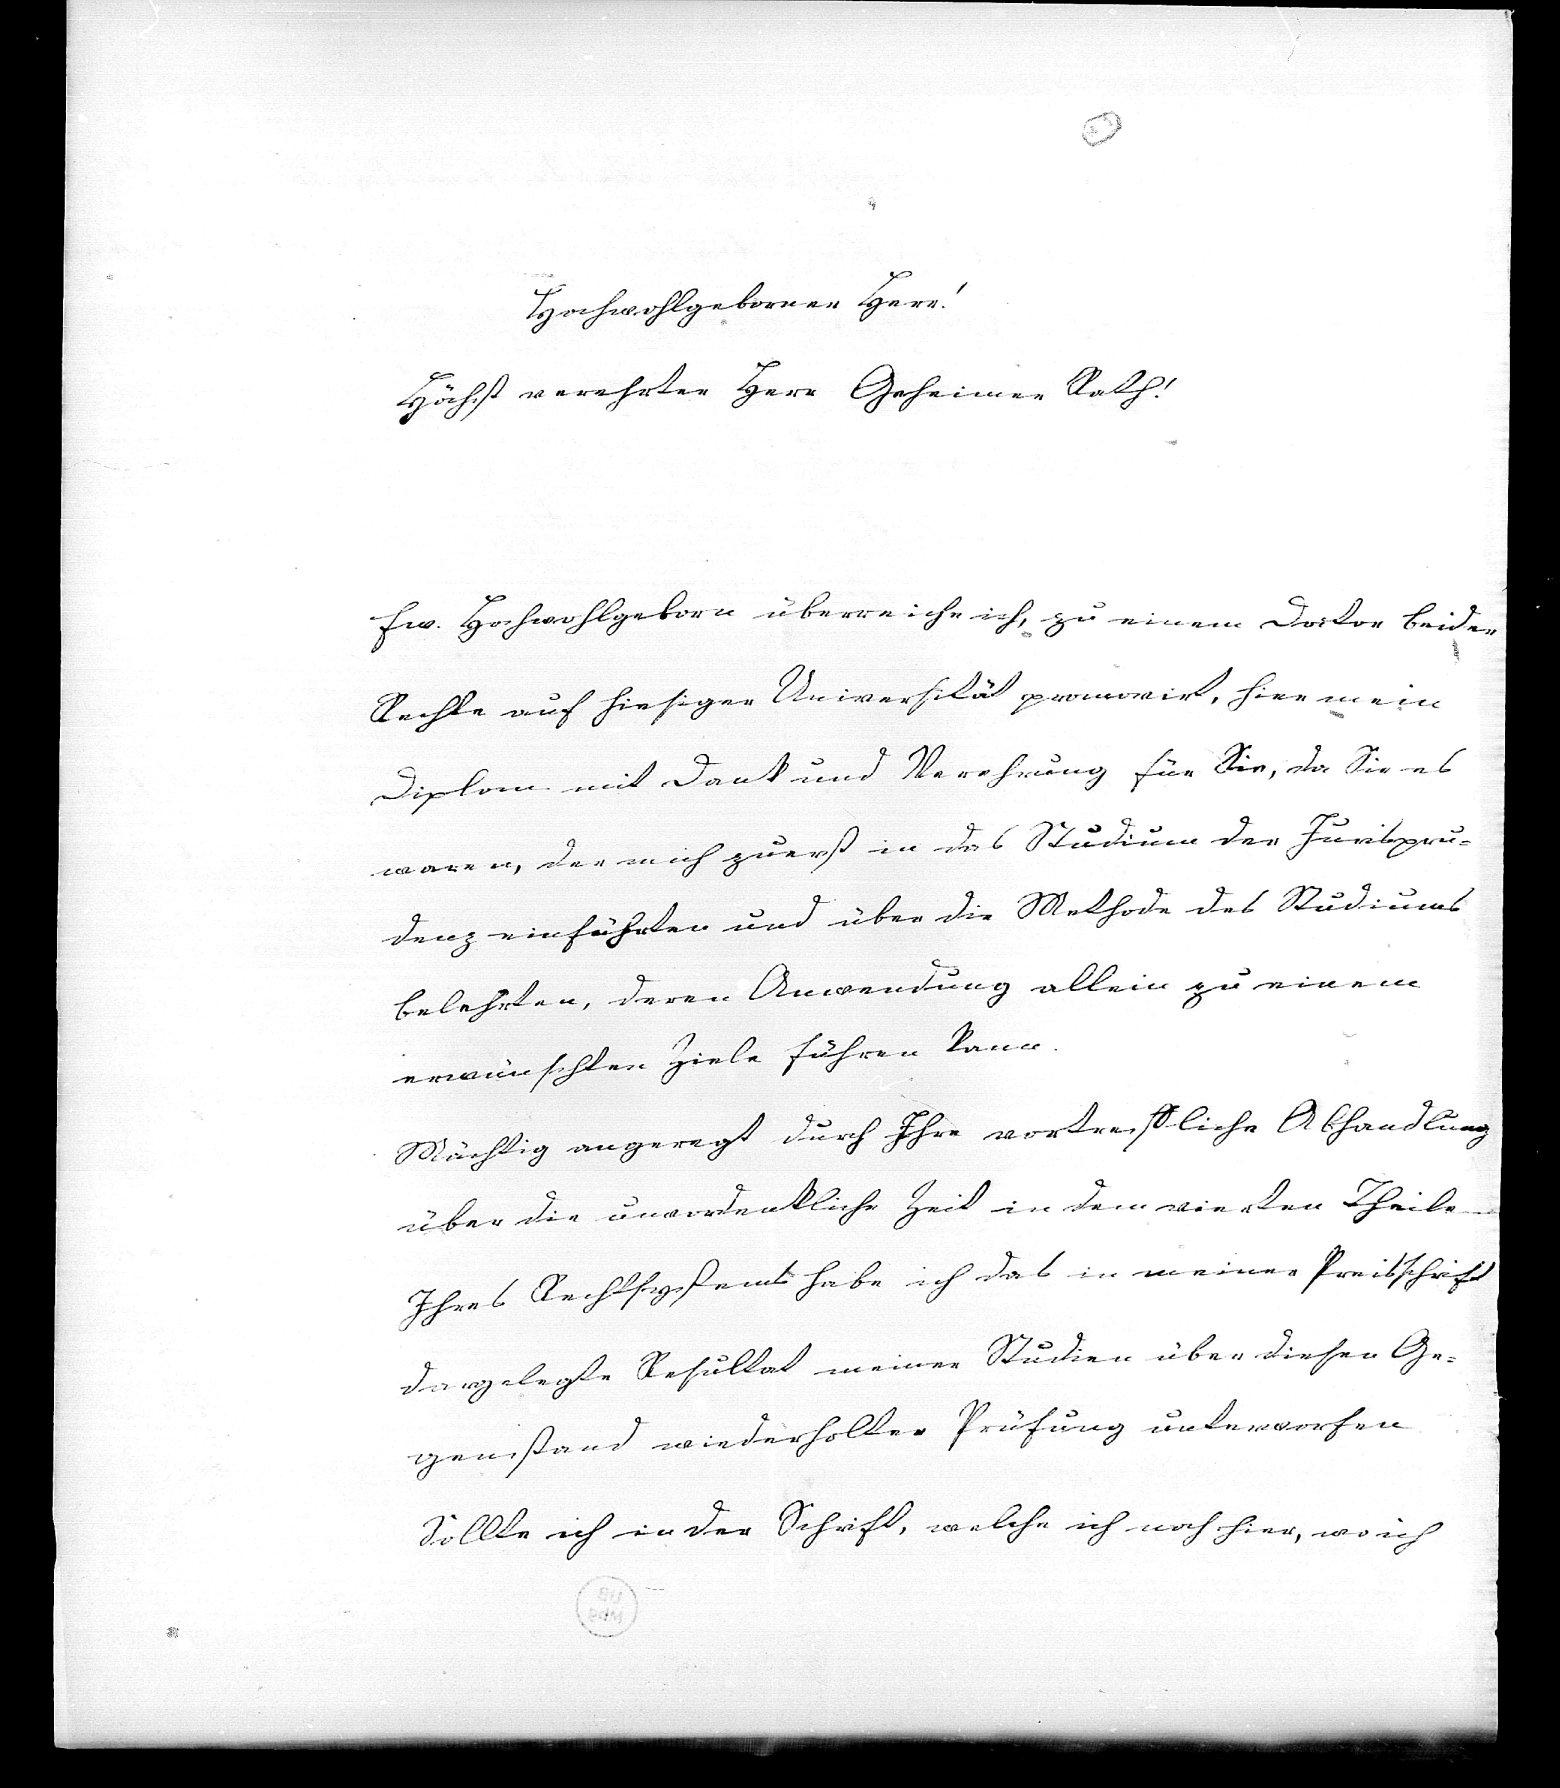 Hochwohlgeborner Herr!
Höchst verehrter Herr Geheimer Rath!
Ew. Hochwohlgeborn überreiche ich, zu einem Doctor beider
Rechte auf hiesiger Universität promovirt, hier mein
Diplom mit Dank und Verehrung für Sie, da Sie es
waren, der mich zuerst in das Studium der Jurispru-
denz einführten und über die Methode des Studiums
belehrten, deren Anwendung allein zu einem
erwünschten Ziele führen kann.
Mächtig angeregt durch Ihre vortreffliche Abhandlung
über die unvordenkliche Zeit in dem vierten Theile
Ihres Rechtssystems habe ich das in meiner Preisschrift
dargelegte Resultat meiner Studien über diesen Ge-
genstand wiederholter Prüfung unterworfen
Sollte ich in der Schrift, welche ich noch hier, wo ich